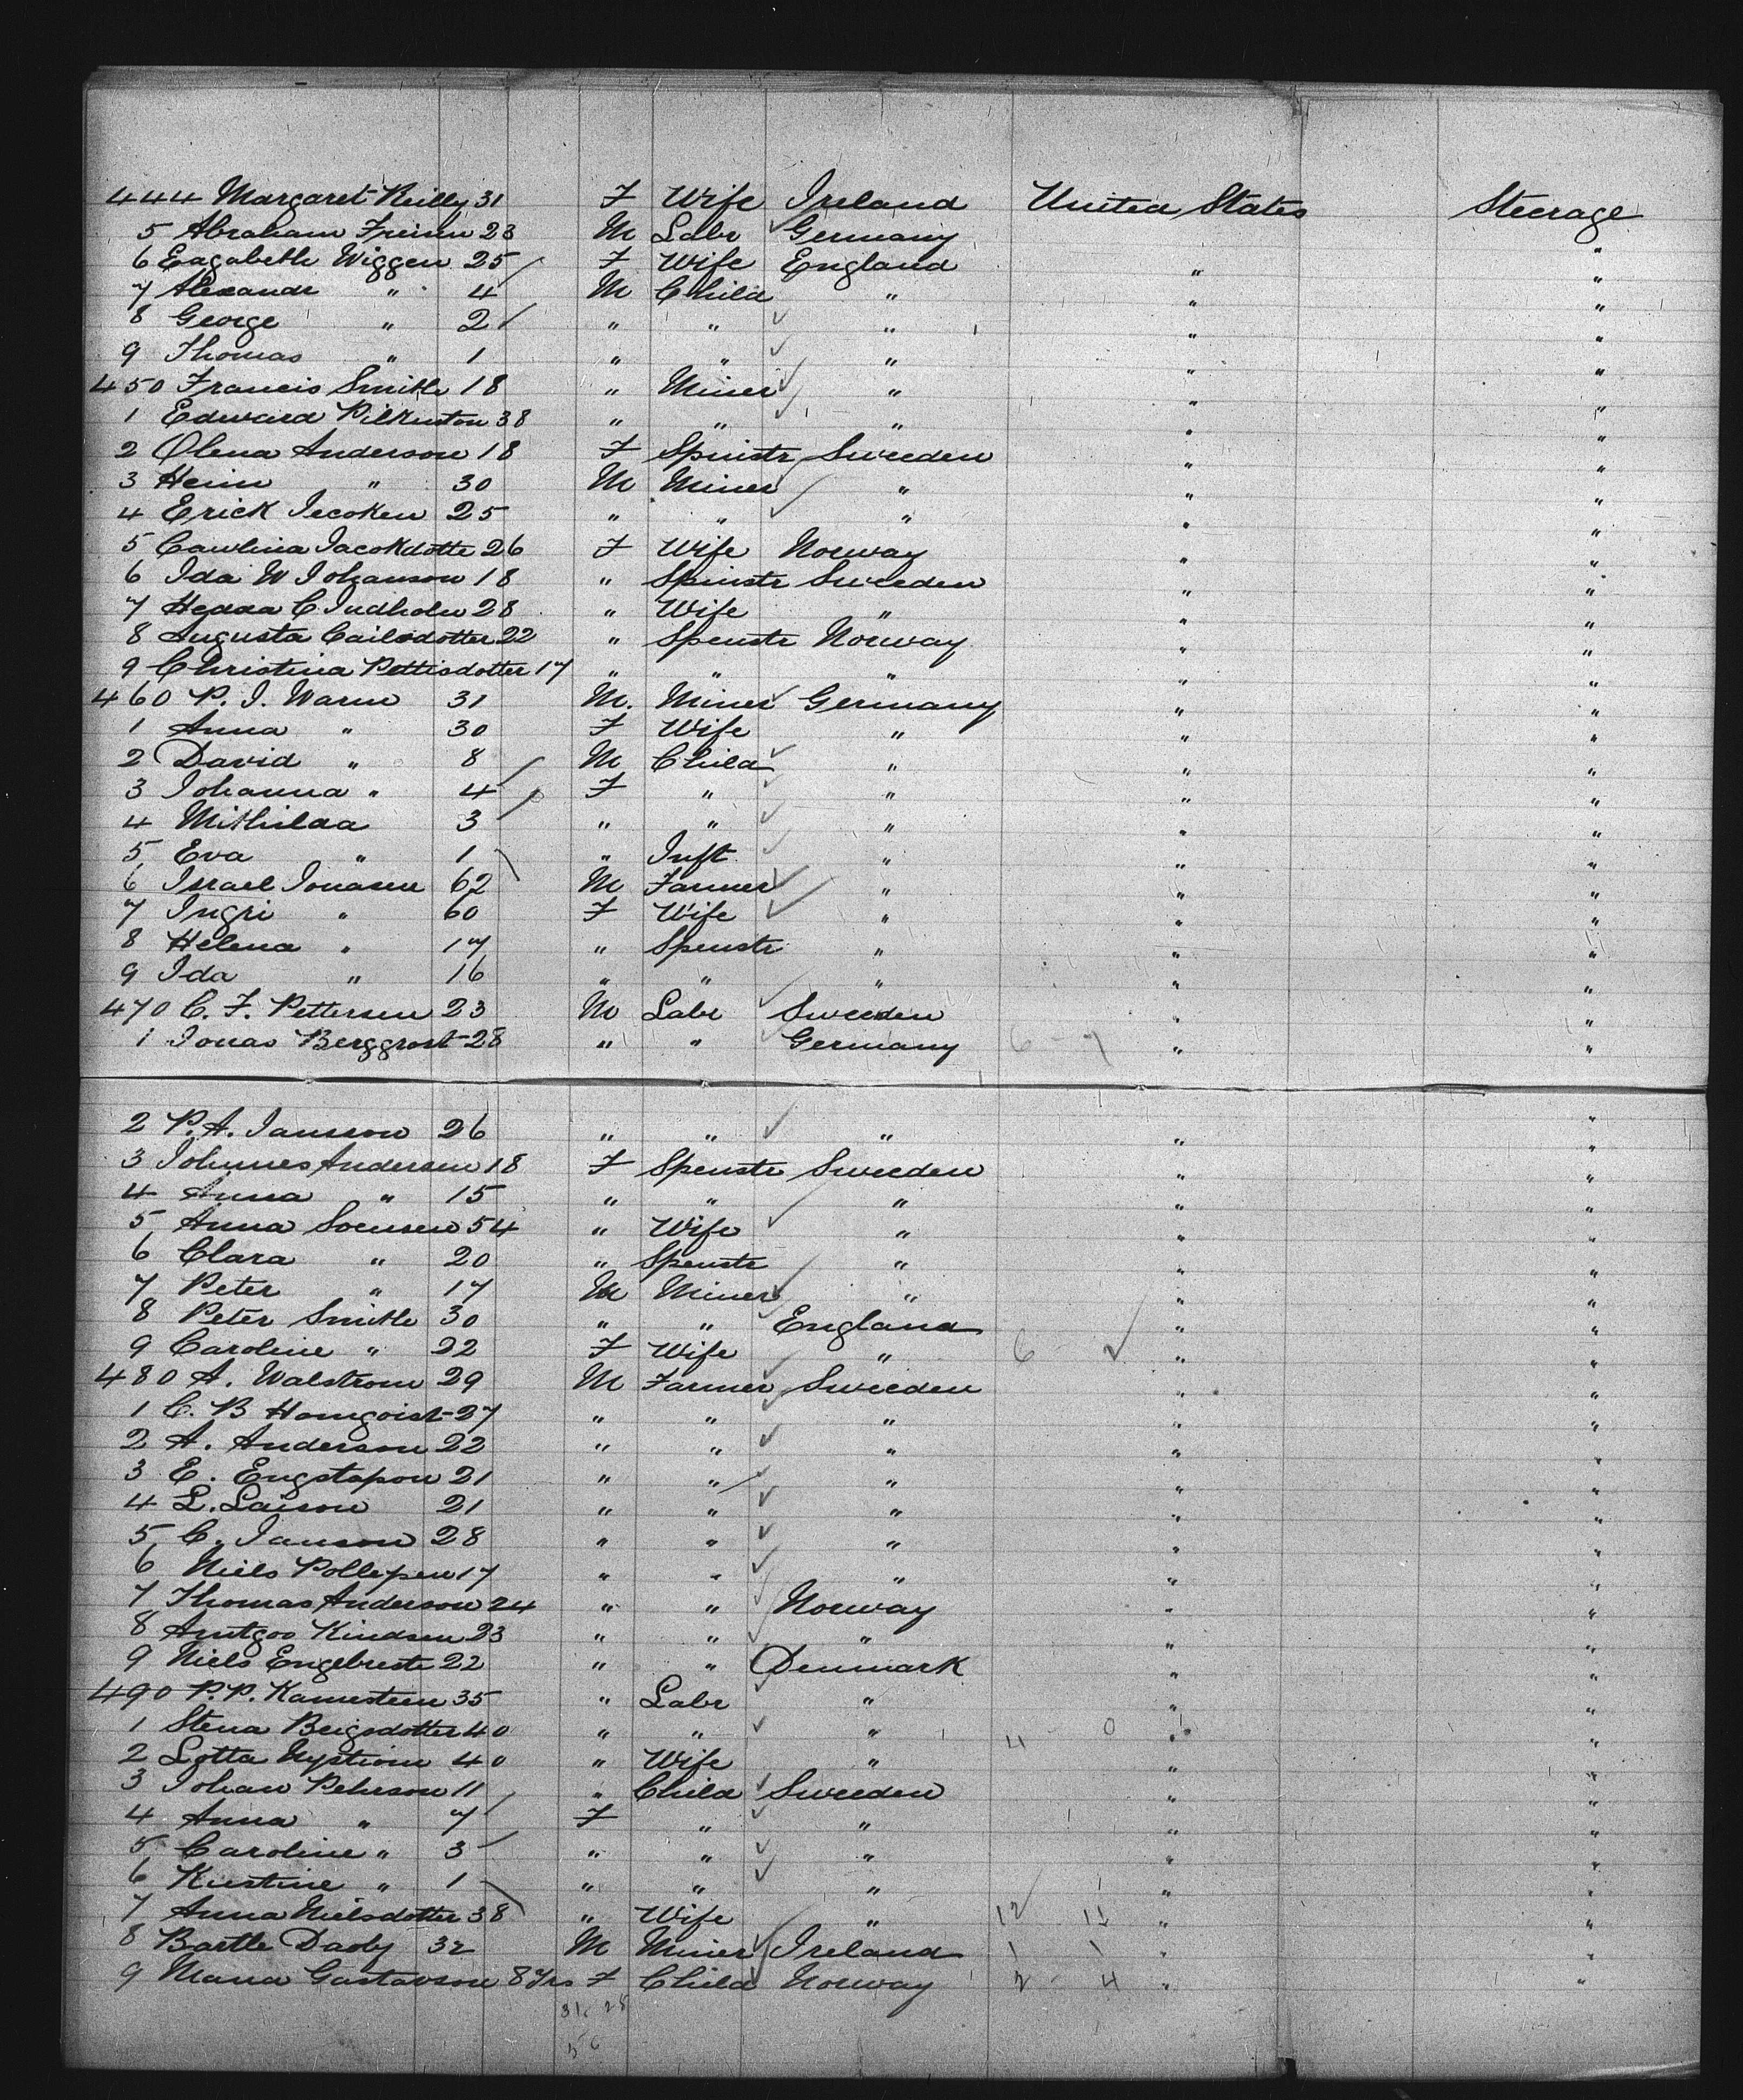 444 Margaret Reilly 31 F Wife Ireland United States Steerage
5 Abraham 23 M Labr Germany " "
6 Eagabeth Wiggen 25 F Wife England " "
7 Alexandr " 4 M Child " " "
8 George " 2 " " " " "
9 Thomas " 1 " " " " "
450 Francis Smith 18 " Miner " " "
1 Edward Pilkinton 38 " " " " "
2 Olena Anderson 18 F Spinstr Sweeden " "
3 Heim " 30 M Miner " " "
4 Erick Jecoken 25 " " " " "
5 Cawlina Jacokdotte 26 F Wife Norway " "
6 Ida W Johanson 18 " Spinstr Sweeden " "
7 Hedda C Judholm 28 " Wife " " "
8 Augusta Cailsdotter 22 " Spenstr Norway " "
9 Christina Pettisdotter 17 " " " " "
460 P. J. Warm 31 M. Miner Germany " "
1 Anna " 30 F Wife " " "
2 David " 8 M Child " " "
3 Johanna " 4 F " " " "
4 Mithilda 3 " " " " "
5 Eva " 1 " Inft " " "
6 Israel Jonasen 62 M Farmer " " "
7 Ingri " 60 F Wife " " "
8 Helena " 17 " Spenstr " " "
9 Ida " 16 " " " " "
470 C. F. Pettersen 23 M Labr Sweeden " "
1 Jonas Berggrost 28 " " Germany 6 - 7 " "
2 P. A. Jansson 26 " " " " "
3 Johnnes Andersen 18 F Spenstr Sweeden " "
4 Anna " 15 " " " " "
5 Anna Soensen 54 " Wife " " "
6 Clara " 20 " Spenstr " " "
7 Peter " 17 M Miner " " "
8 Peter Smith 30 " " England " "
9 Caroline " 22 F Wife " 6 " "
480 A. Walstrom 29 M Farmer Sweeden " "
1 C. B Homgoist 27 " " " " "
2 A. Anderson 22 " " " " "
3 E. Engstapon 21 " " " " "
4 L. Laison 21 " " " " "
5 C. Janson 28 " " " " "
6 Niels Pollepen 17 " " " " "
7 Thomas Anderson 24 " " Norway " "
8 Amtgoo Kindsen 23 " " " " "
9 Niels Engebreste 22 " " Denmark " "
490 P. P. Kamesteen 35 " Labr " " "
1 Stena Beigsdotter 40 " " " 4 0 " "
2 Lotta Nystiom 40 " Wife " " "
3 Johan Peherson 11 " Child Sweeden " "
4 Anna " 7 F " " " "
5 Caroline " 3 " " " " "
6 Kiestine " 1 " " " " "
7 Anna Nielsdotter 38 " Wife " 12 11 " "
8 Bartle Dady 32 M Miner Ireland 1 1 " "
9 Maria Gustavson 8 Yrs F Child Norway 2 - 4 " "
31 28